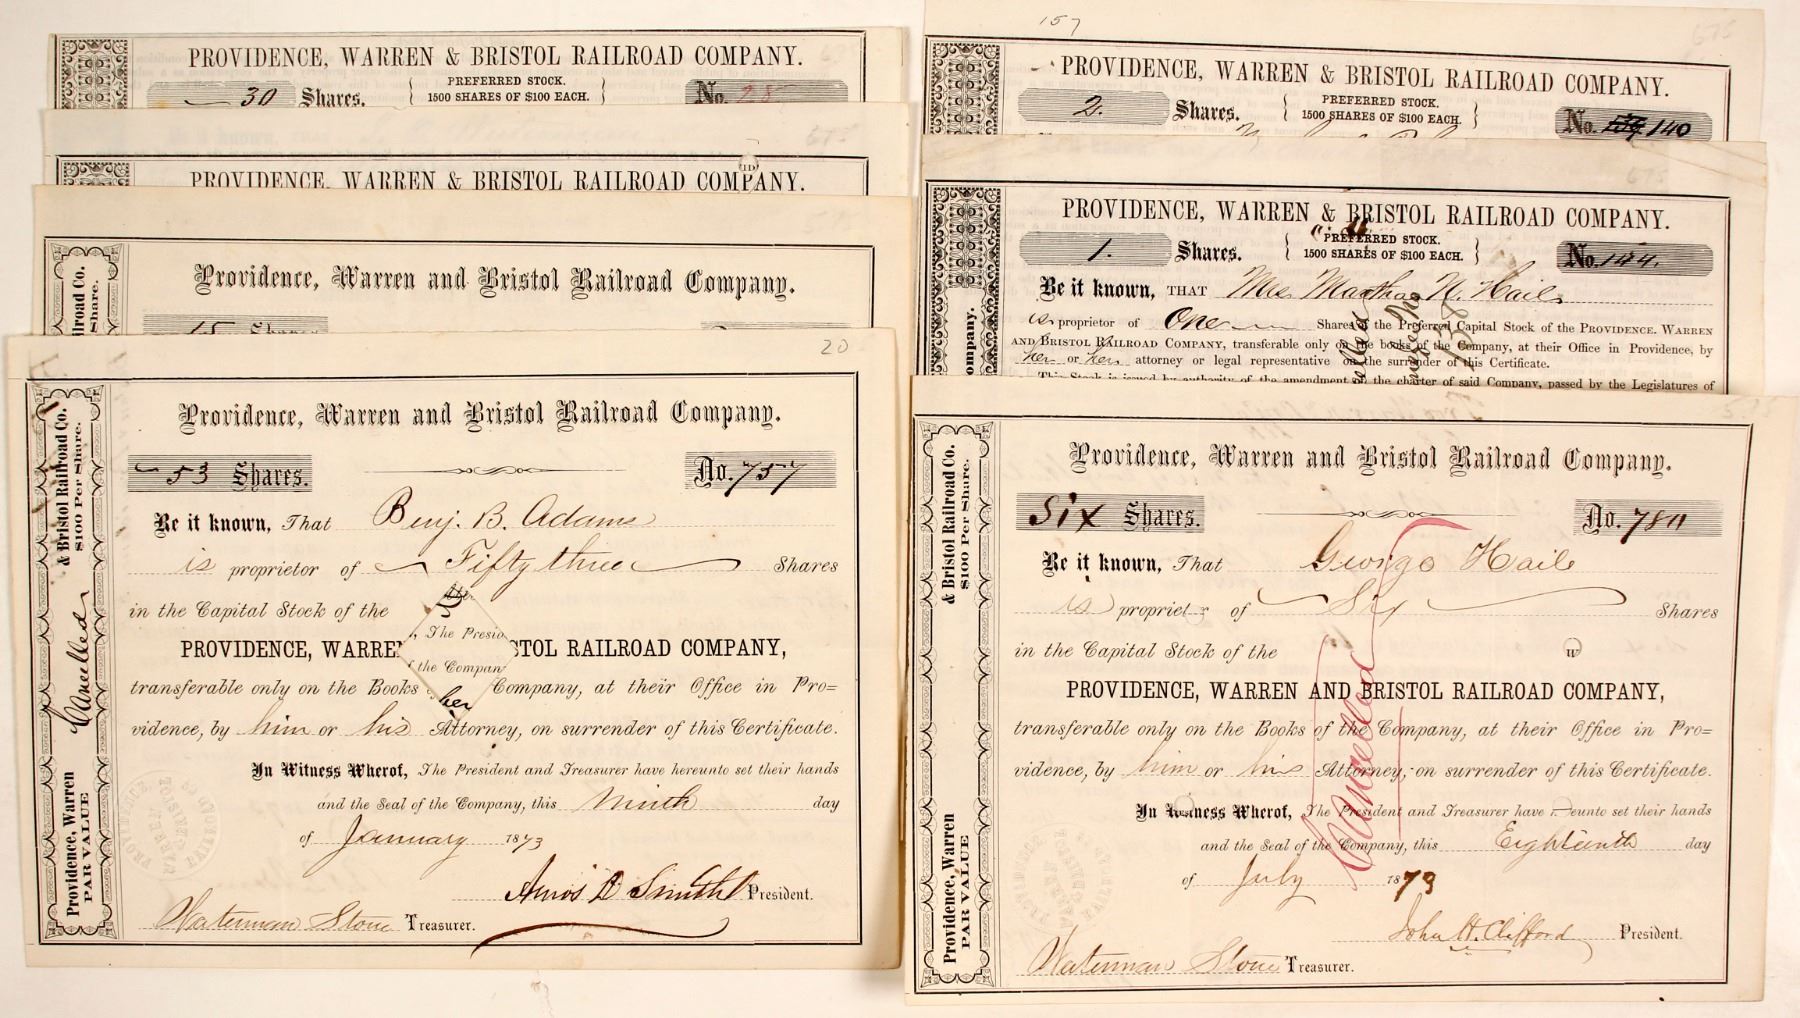 PROVIDENCE, WARREN & BRISTOL RAILROAD COMPANY.
30 Shares. PREFERRED STOCK. 1500 SHARES OF $100 EACH. No. 28
675
PROVIDENCE, WARREN & BRISTOL RAILROAD COMPANY.
Providence, Warren and Bristol Railroad Company.
15 Shares
ilroad Co.
Share.
20
Providence, Warren and Bristol Railroad Company.
53 Shares. No. 757
Be it known, That Benj. B. Adams
is proprietor of Fifty three Shares
in the Capital Stock of the
, The Presid
PROVIDENCE, WARRE STOL RAILROAD COMPANY,
f the Compan
transferable only on the Books Company, at their Office in Pro=
her
vidence, by him or his Attorney, on surrender of this Certificate.
In Witness Wherof, The President and Treasurer have hereunto set their hands
and the Seal of the Company, this Ninth day
of January 1873
Amos D Smith President.
Waterman Stone Treasurer.
Providence, Warren & Bristol Railroad Co.
PAR VALUE $100 Per Share.
Cancelled
157
675
PROVIDENCE, WARREN & BRISTOL RAILROAD COMPANY.
2. Shares. PREFERRED STOCK. 1500 SHARES OF $100 EACH. No. 140
675
PROVIDENCE, WARREN & BRISTOL RAILROAD COMPANY.
1. Shares. PREFERRED STOCK. 1500 SHARES OF $100 EACH. No. 144.
Be it known, THAT Mrs Martha N. Haile
is proprietor of One Shares of the Preferred Capital Stock of the PROVIDENCE. WARREN
AND BRISTOL RAILROAD COMPANY, transferable only on the books of the Company, at their Office in Providence, by
her or her attorney or legal representative on the surrender of this Certificate.
This Stock is issued by authority of the amendment of the charter of said Company, passed by the Legislatures of
ompany.
Providence, Warren and Bristol Railroad Company.
Six Shares. No. 780
Be it known, That George Haile
is proprietor of Six Shares
in the Capital Stock of the
W
PROVIDENCE, WARREN AND BRISTOL RAILROAD COMPANY,
transferable only on the Books of the Company, at their Office in Pro=
vidence, by him or his Attorney, on surrender of this Certificate.
In Witness Wherof, The President and Treasurer have hereunto set their hands
and the Seal of the Company, this Eighteenth day
of July 1873
John H. Clifford President.
Waterman Stone Treasurer.
Providence, Warren & Bristol Railroad Co.
PAR VALUE $100 Per Share.
Cancelled